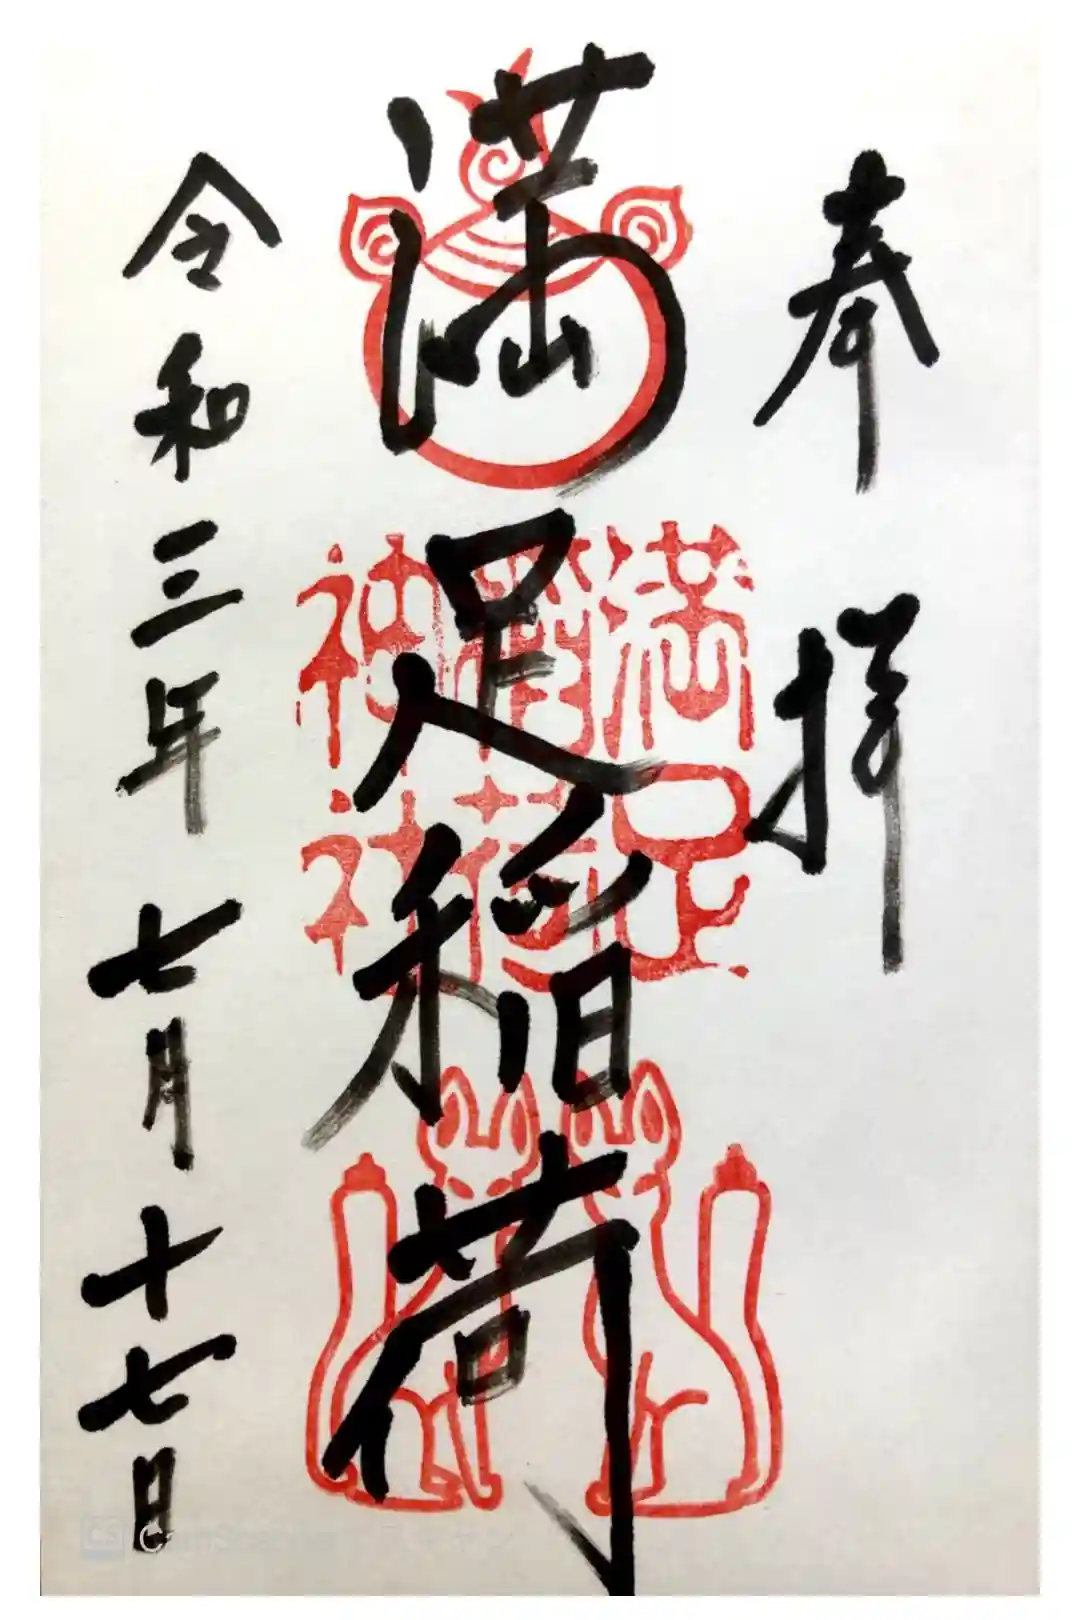 奉拝
満足稲荷
満足
稲荷
神社
令和三年七月十七日
CamScanner